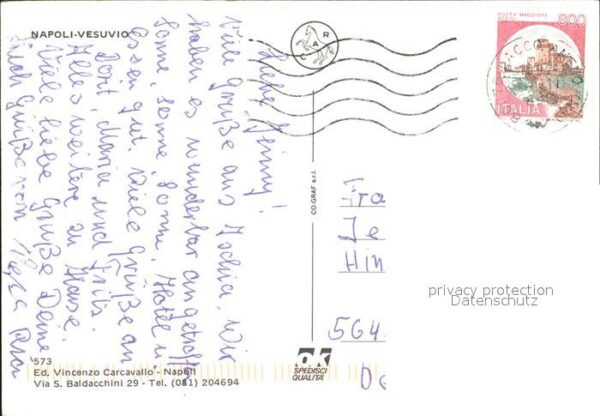 NAPOLI-VESUVIO
Liebe Jenny!
Viele Grüße aus Ischia. Wir
haben es wunderbar angetroffen
Sonne, Sonne, Sonne, Hotel u.
Essen gut. Viele Grüße an
Dorit, Maria und Fritz.
Alles weitere zu Hause.
Viele liebe Grüße Deine
Auch Grüße von
CO.GRAF s.r.l.
R
A
C
ROCCA MAGGIORE
ASSISI
800
ITALIA
Fra
Je
Hin
564
De
privacy protection
Datenschutz
OK
SPEDISCI
QUALITA'
573
Ed. Vincenzo Carcavallo - Napoli
Via S. Baldacchini 29 - Tel. (081) 204694